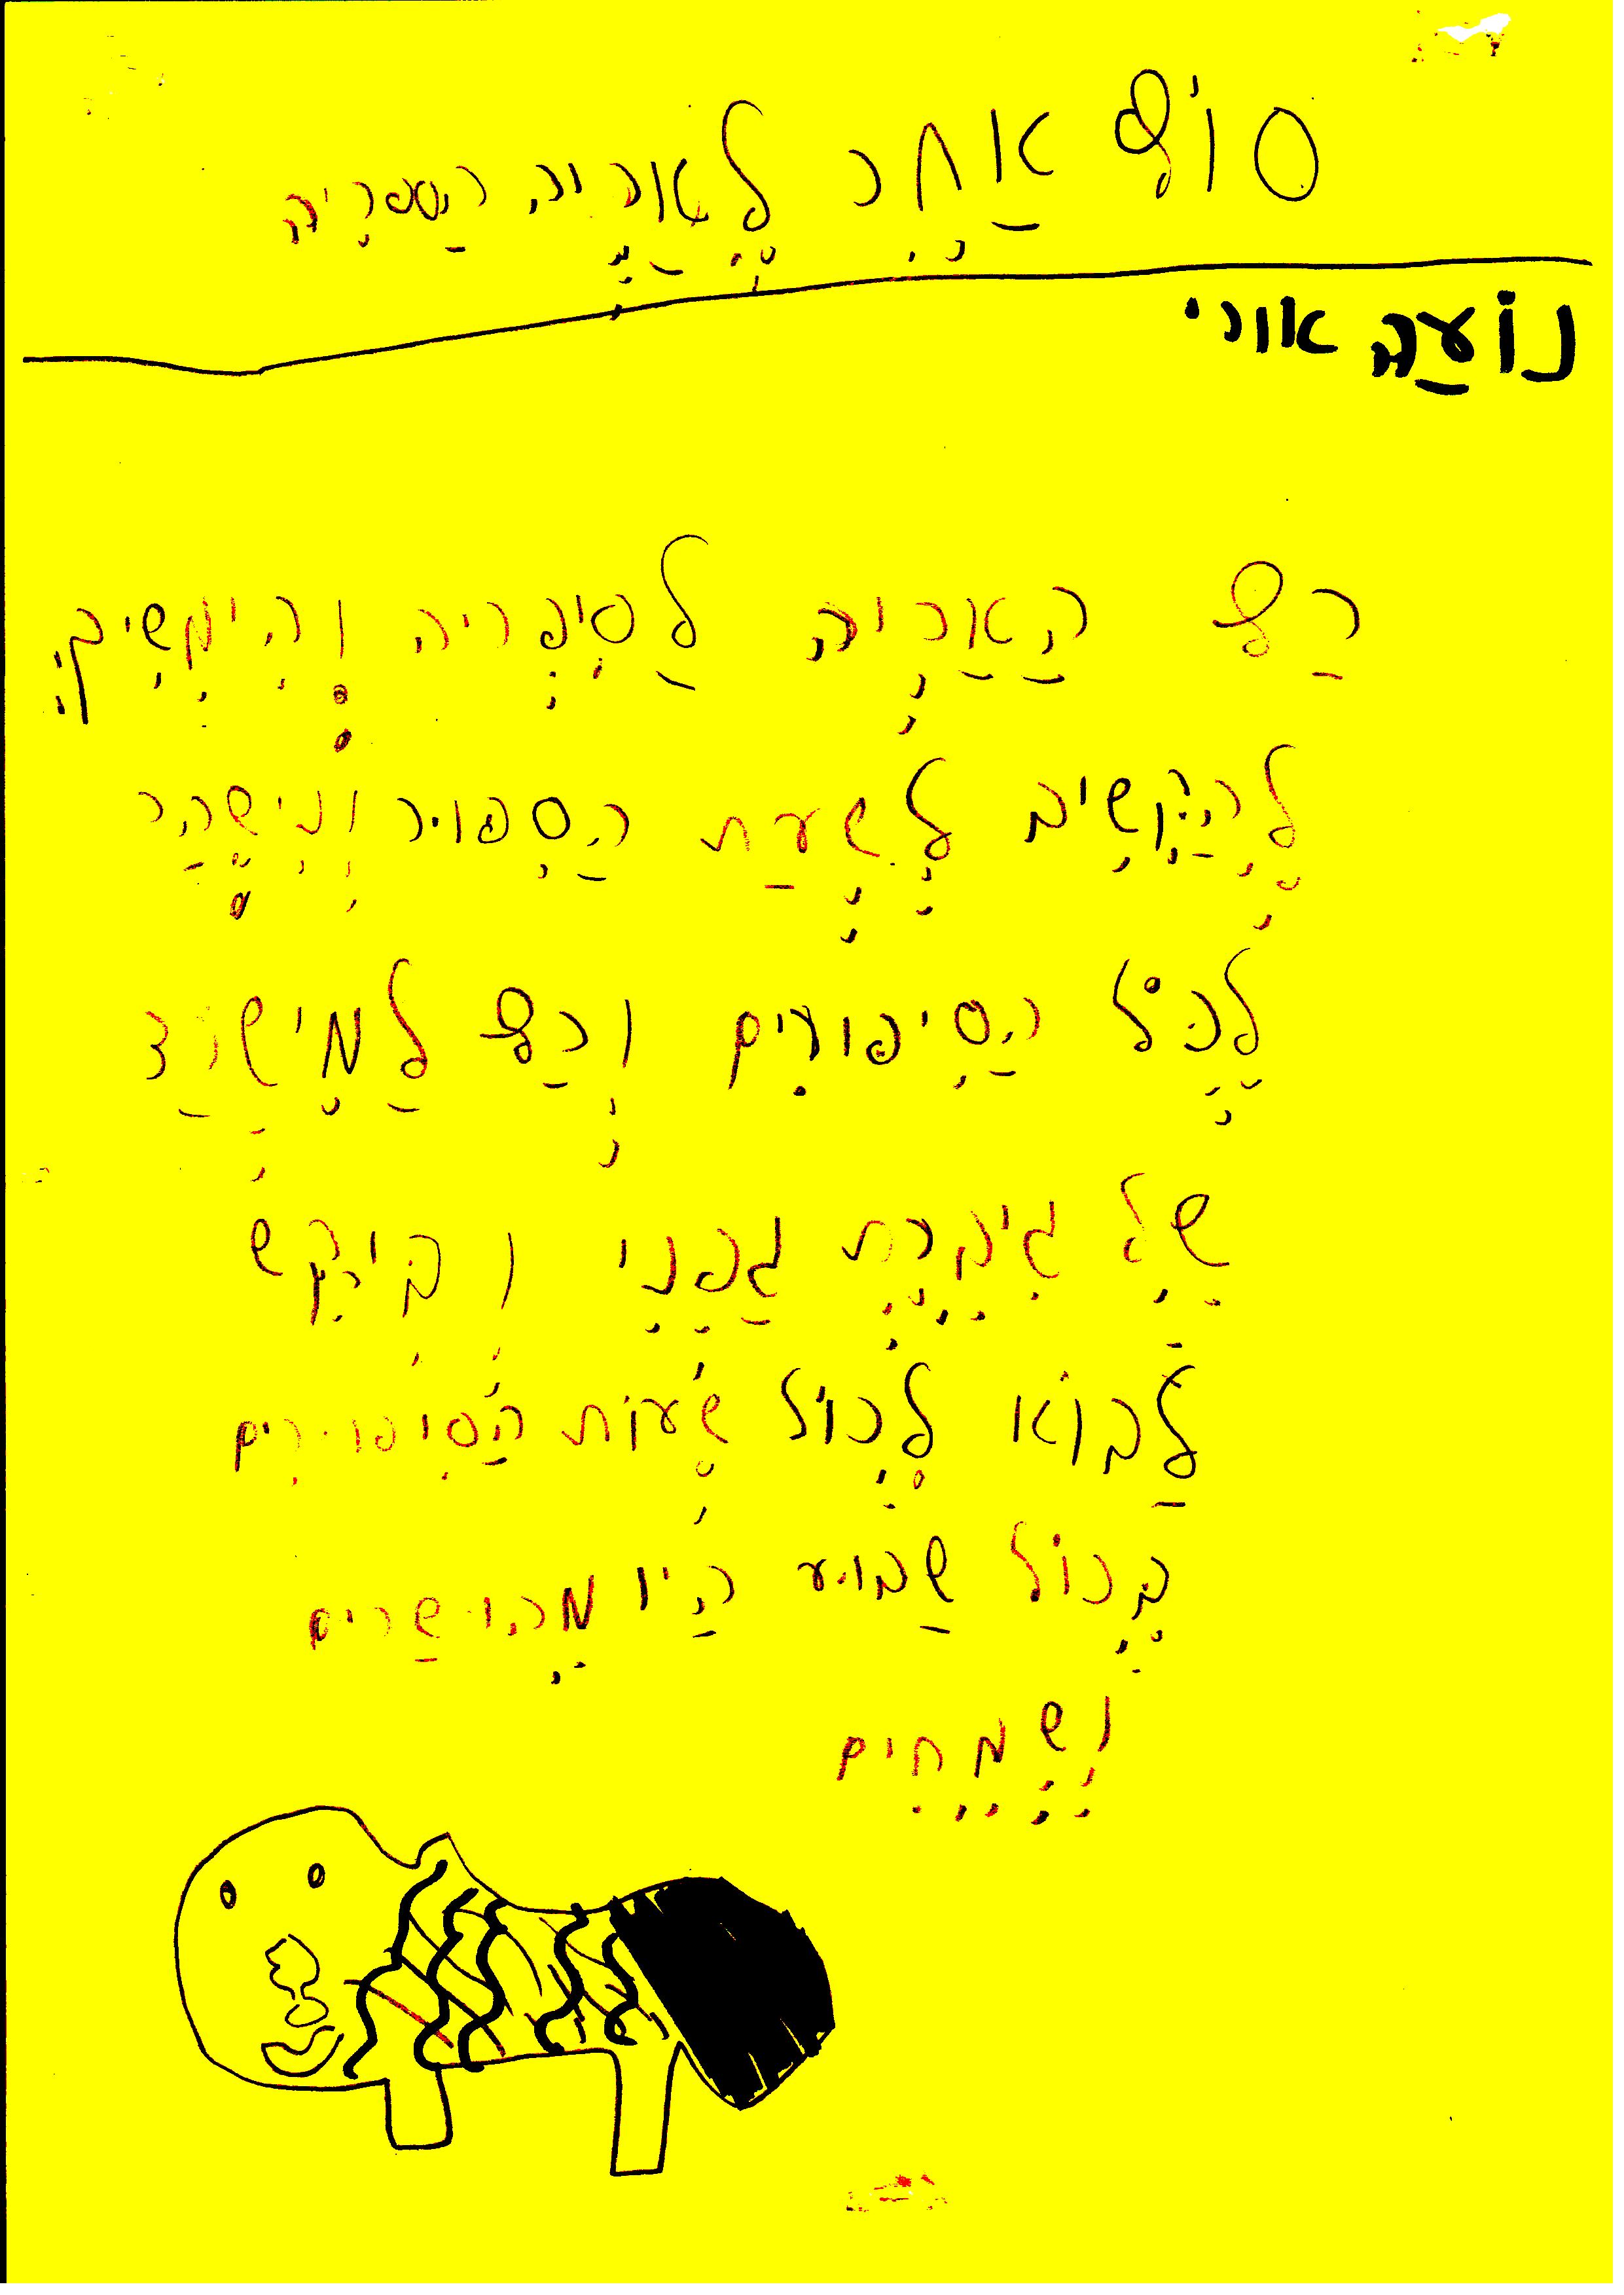 סוֹף אַחֵר לְאַרְיֵה הַסִפְרִיָה
נוֹעַה אורי
רַץ הַאַרְיֵה לַסִיפְרִיה וְהִימְשִיךְ
לְהַקְשִיב לְשְעַת הַסִפּוּר וְנִישְאַר
לְכֹּל הַסִיפּוּרִים וְרַץ לַמִישְרַד
שֶל גְבֶרֶת גַפְנִי וּבִיקֵש
לַבוֹא לְכוֹל שְעוֹת הַסִיפּוּרִים
בְּכוֹל שַבוּע הַיו מְאוּשַרִים
וְשְמֵחִים